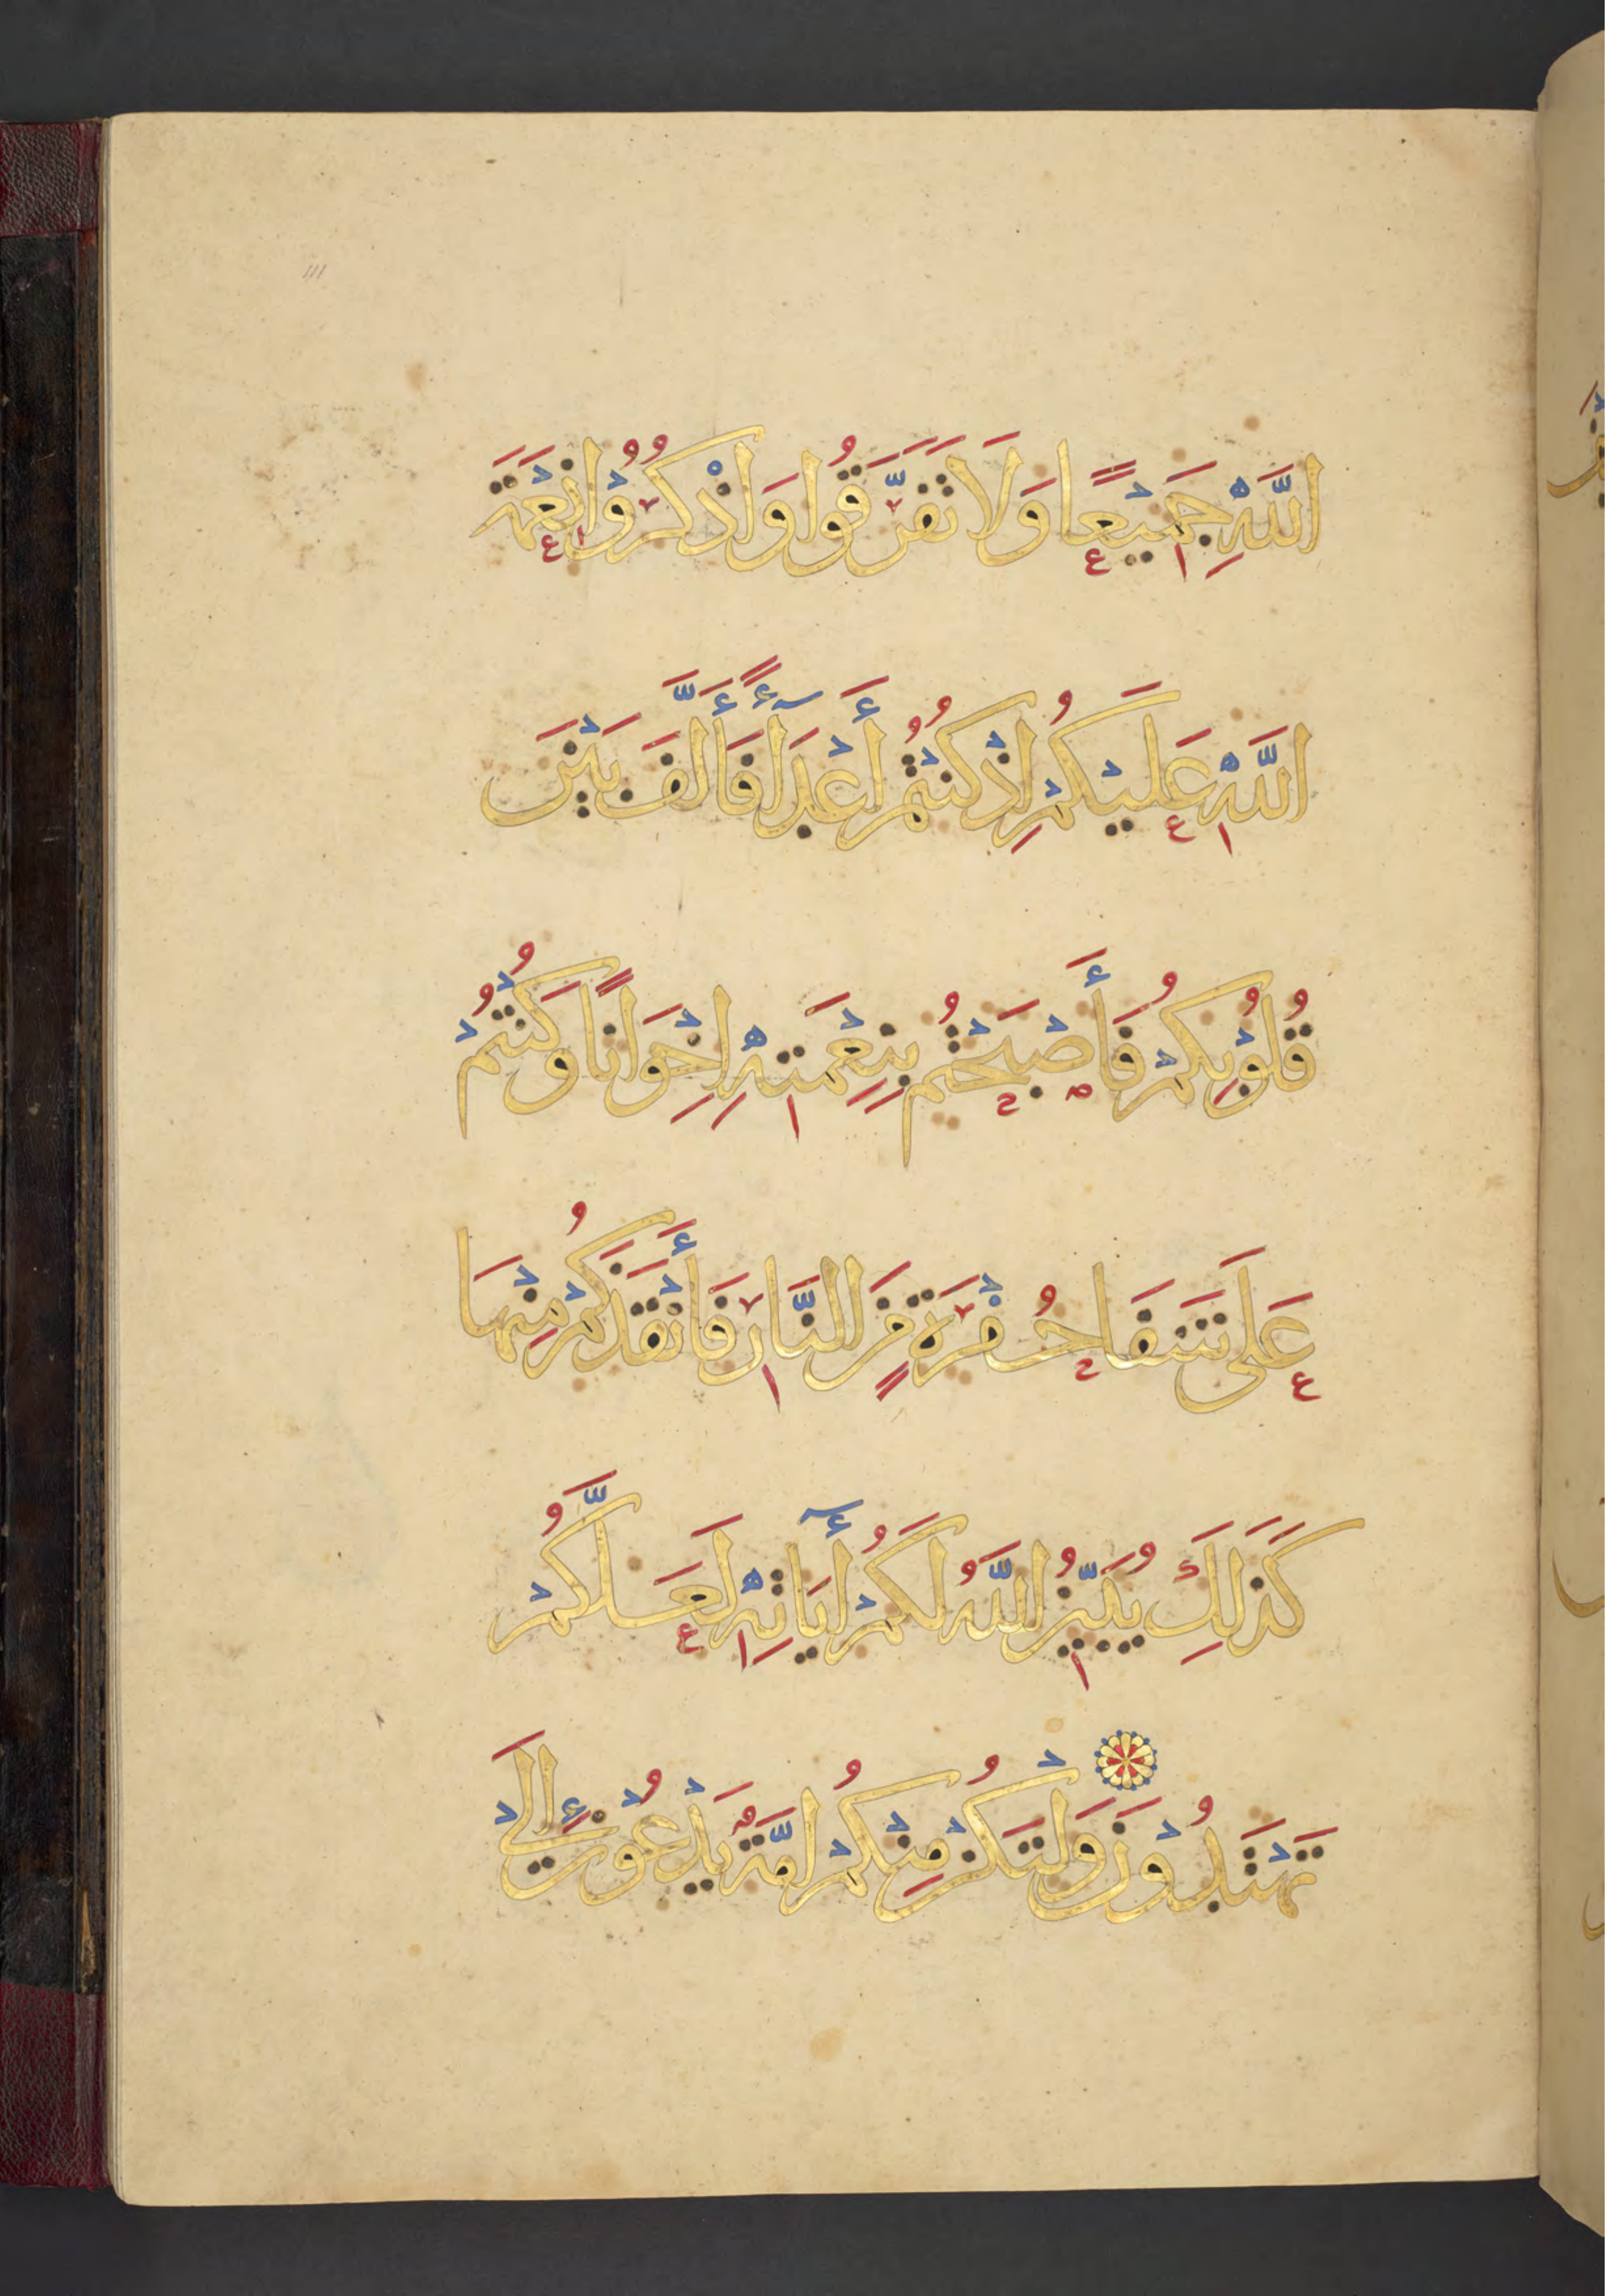 اللَّهِ جَمِيْعًا وَلَا تَفَرَّقُوا وَاذْكُرُوْا نِعْمَةَ
اللَّهِ عَلَيْكُمْ إِذْ كُنْتُمْ أَعْدَآءً فَأَلَّفَ بَيْنَ
قُلُوْبِكُمْ فَأَصْبَحْتُمْ بِنِعْمَتِهِ اِخْوَانًا وَكُنْتُمْ
عَلَى شَفَا حُفْرَةٍ مِنَ النَّارِ فَأَنْقَذَكُمْ مِنْهَا
كَذَلِكَ يُبَيِّنُ اللَّهُ لَكُمْ أٓيَاتِهِ لَعَلَّكُمْ
تَهْتَدُوْنَ وَلْتَكُنْ مِنْكُمْ اُمَّةٌ يَدْعُوْنَ إِلَى